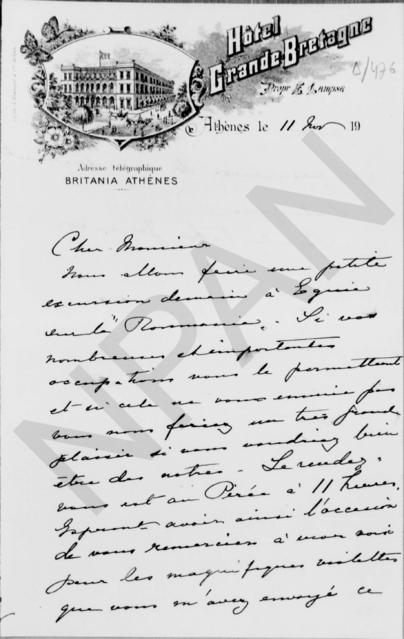 Hôtel
Grande-Bretagne
Δ/476
Propr. E. Lampsa
Athènes le 11 19
Adresse télégraphique
BRITANIA ATHÈNES
Cher Monsieur
Nous allons faire une petite
excursion demain à Egine
sur le "Roumania". Si vos
nombreuses et importantes
occupations vous le permettent
et si cela ne vous ennuie pas
vous nous feriez un très grand
plaisir si vous vouliez bien
être des nôtres. Le rendez-
vous est au Pirée à 11 heures.
Espérant avoir ainsi l'occasion
de vous remercier à vive voix
pour les magnifiques violettes
que vous m'avez envoyé ce
NPAN